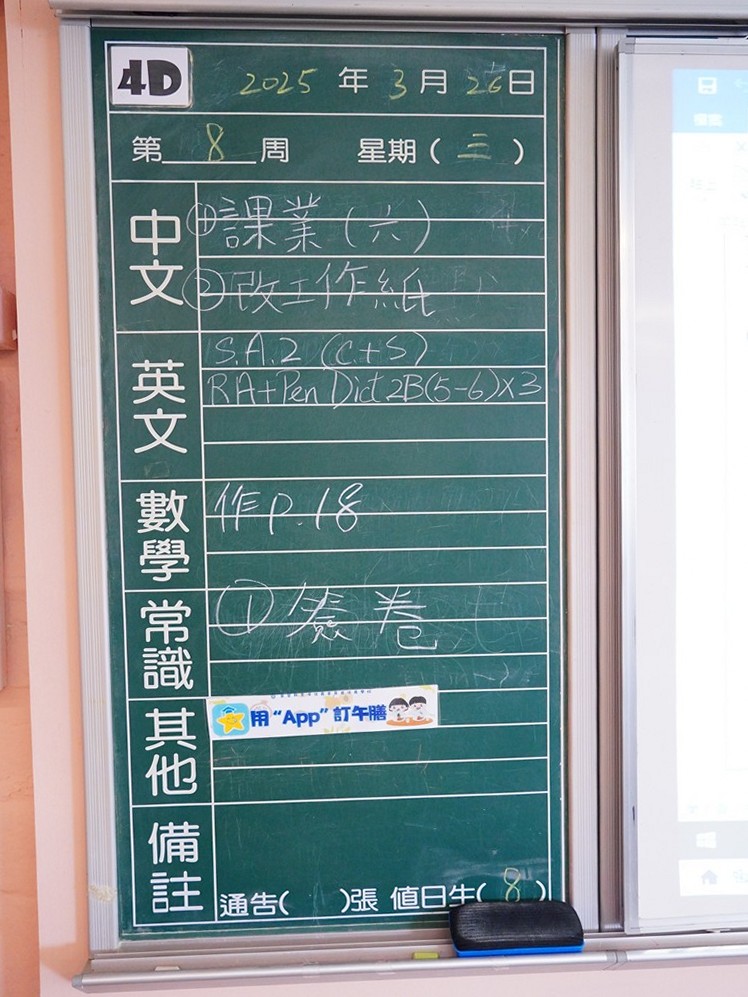 4D 2025年3月26日
第8周 星期(三)
中文
①課業(六)
②改工作紙
英文
S.A.2 (C+S)
RA+Pen Dict 2B(5-6)x3
數學
作P.18
常識
① 卷
其他
用“App”訂午膳
備註
通告( )張 值日生(8)